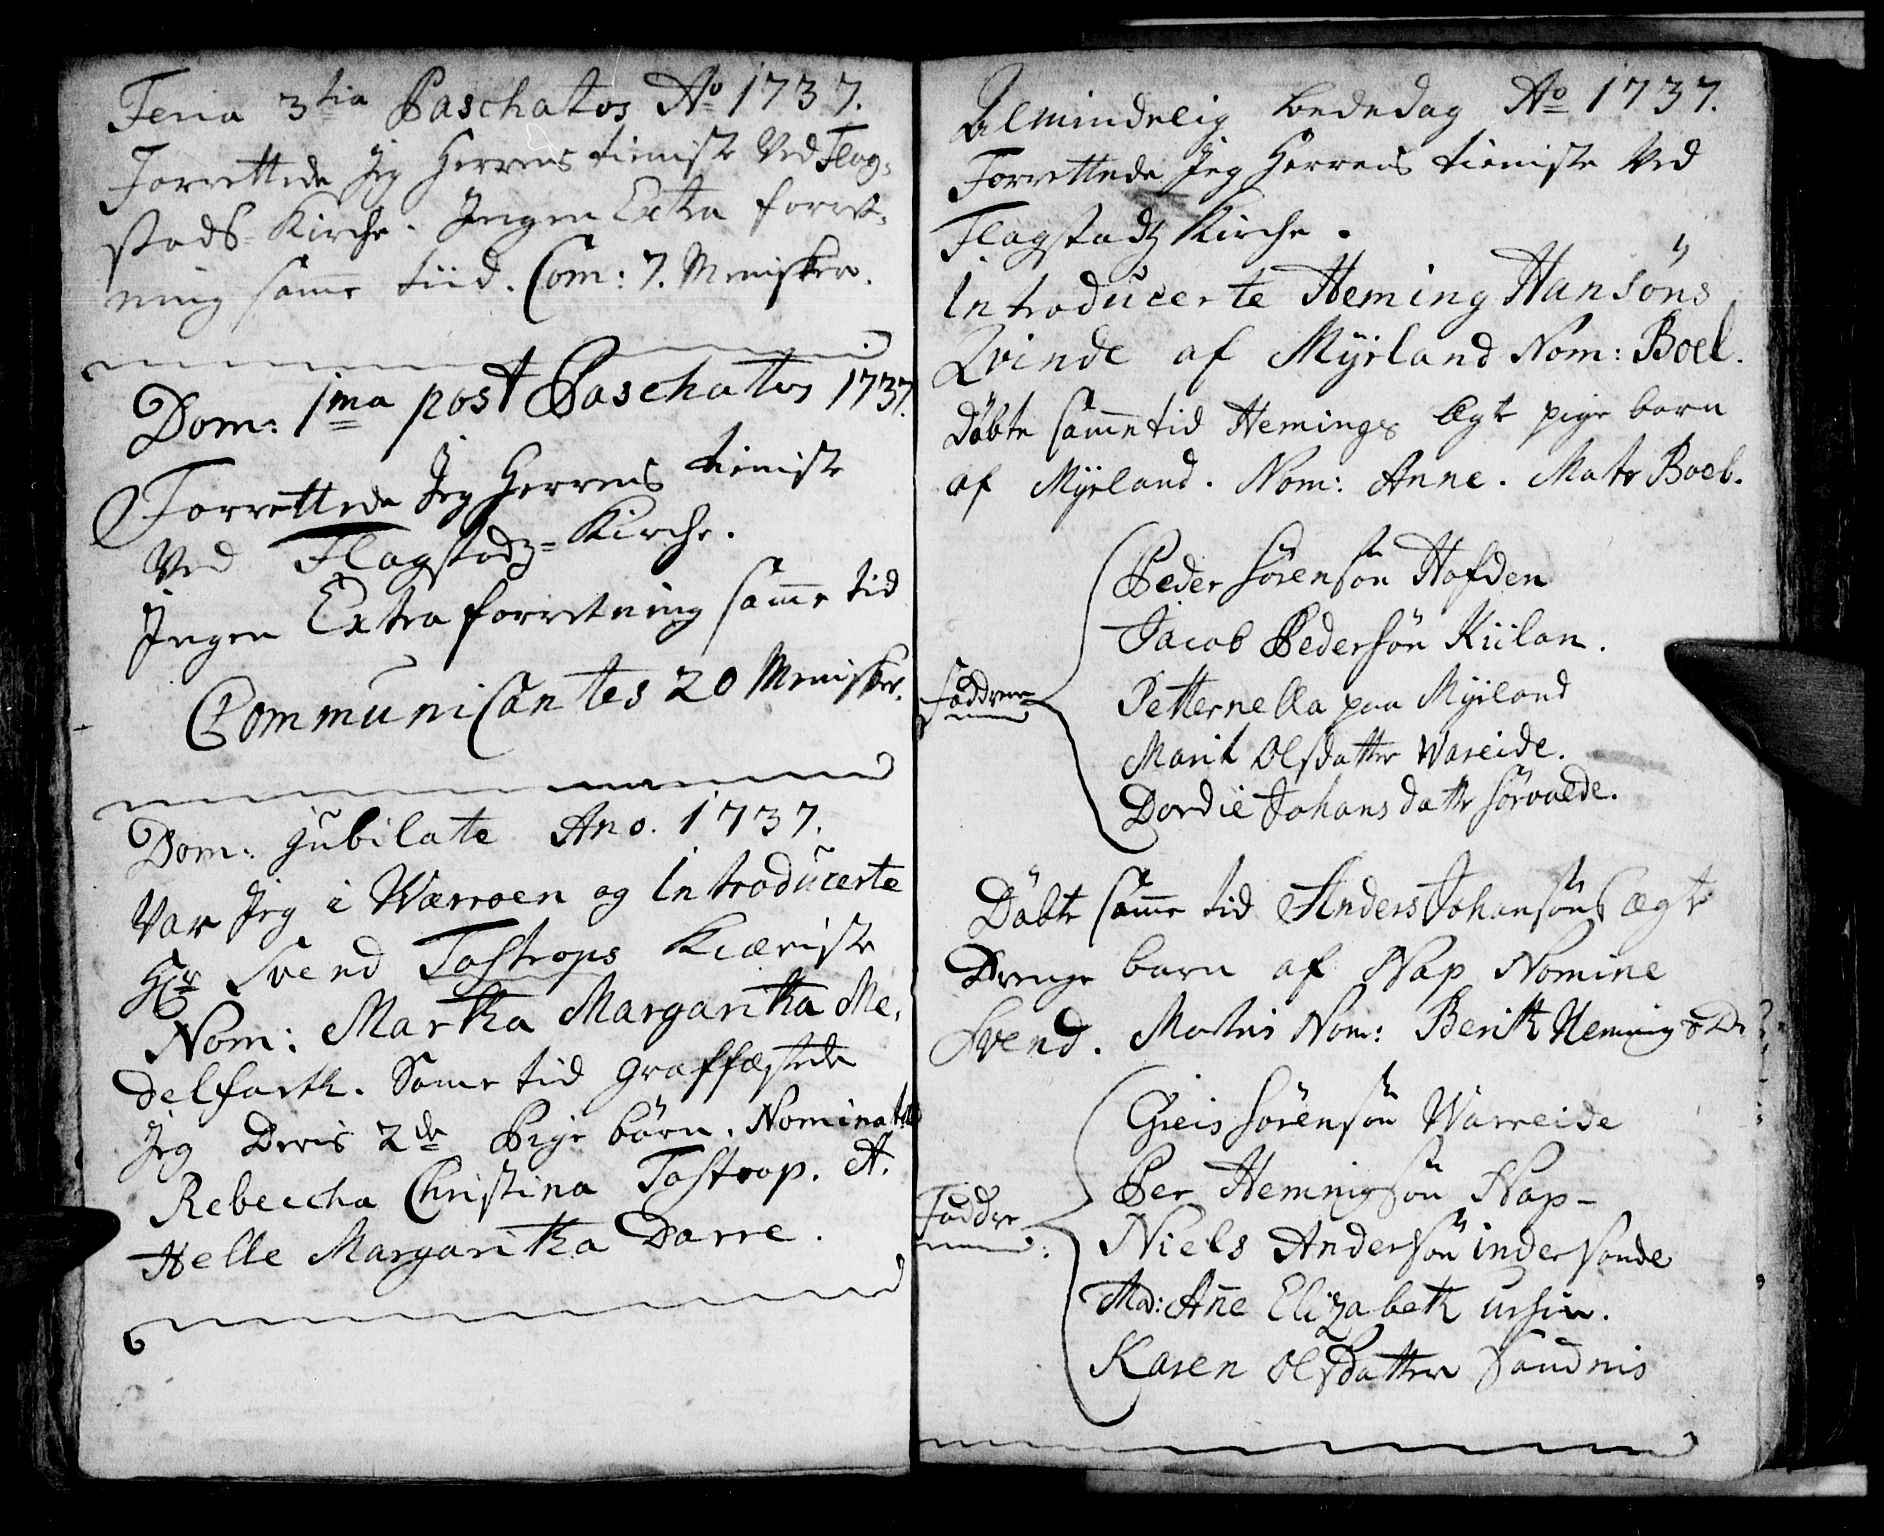 Feria 3tia Paschatos Ao 1737.
Forrettede Jeg Herrens tieniste Ved Flag-
stads Kirche. Jngen Extra forret-
ning samme tiid. Com: 7. Menisker.
Dom: 1ma post Paschatos 1737.
Forrettede Jeg Herrens tieniste
Ved Flagstadz-Kirche.
Jngen Extra forretning samme tid
Communicantes 20 Menisker.
Dom: jubilate Ano. 1737.
Var Jeg i Wærroen og Introducerte
Hr Svend Tostrops Kiæriste
Nom: Martha Margaritha Me-
delfarth. Same tid graffæstede
Jeg Deris 2de Pige börn. Nominatis
Rebeccha Christina Tostrop. et.
Helle Margaritha Darre.
Almindelig bededag Ao 1737.
Forrettede Jeg Herrens tieniste Ved
Flagstadz Kirche.
Introducerte Heming Hansöns
Qvinde af Myrland Nom: Boel.
Döbte samme tid Hemings Ægte pige barn
af Myrland. Nom: Anne. Mater Boel.
Peder Sörensön Hofden
Jacob Pedersön Kiilan.
Faddrene
Petternella paa Myrland
Marit Olsdatter Wareide.
Dordie Johansdatter Sörvalde.
Döbte samme tid Anders Johansöns ægte
Drenge barn af Nap Nomine
Svend. Matris Nom: Berith Heming
Greis Sörensön Warreide
Per Hemingsön Nap-
Faddre
Niels Andersön indersande
Md: Anne Elizabeth Ursin.
Karen Olsdatter Sandnis